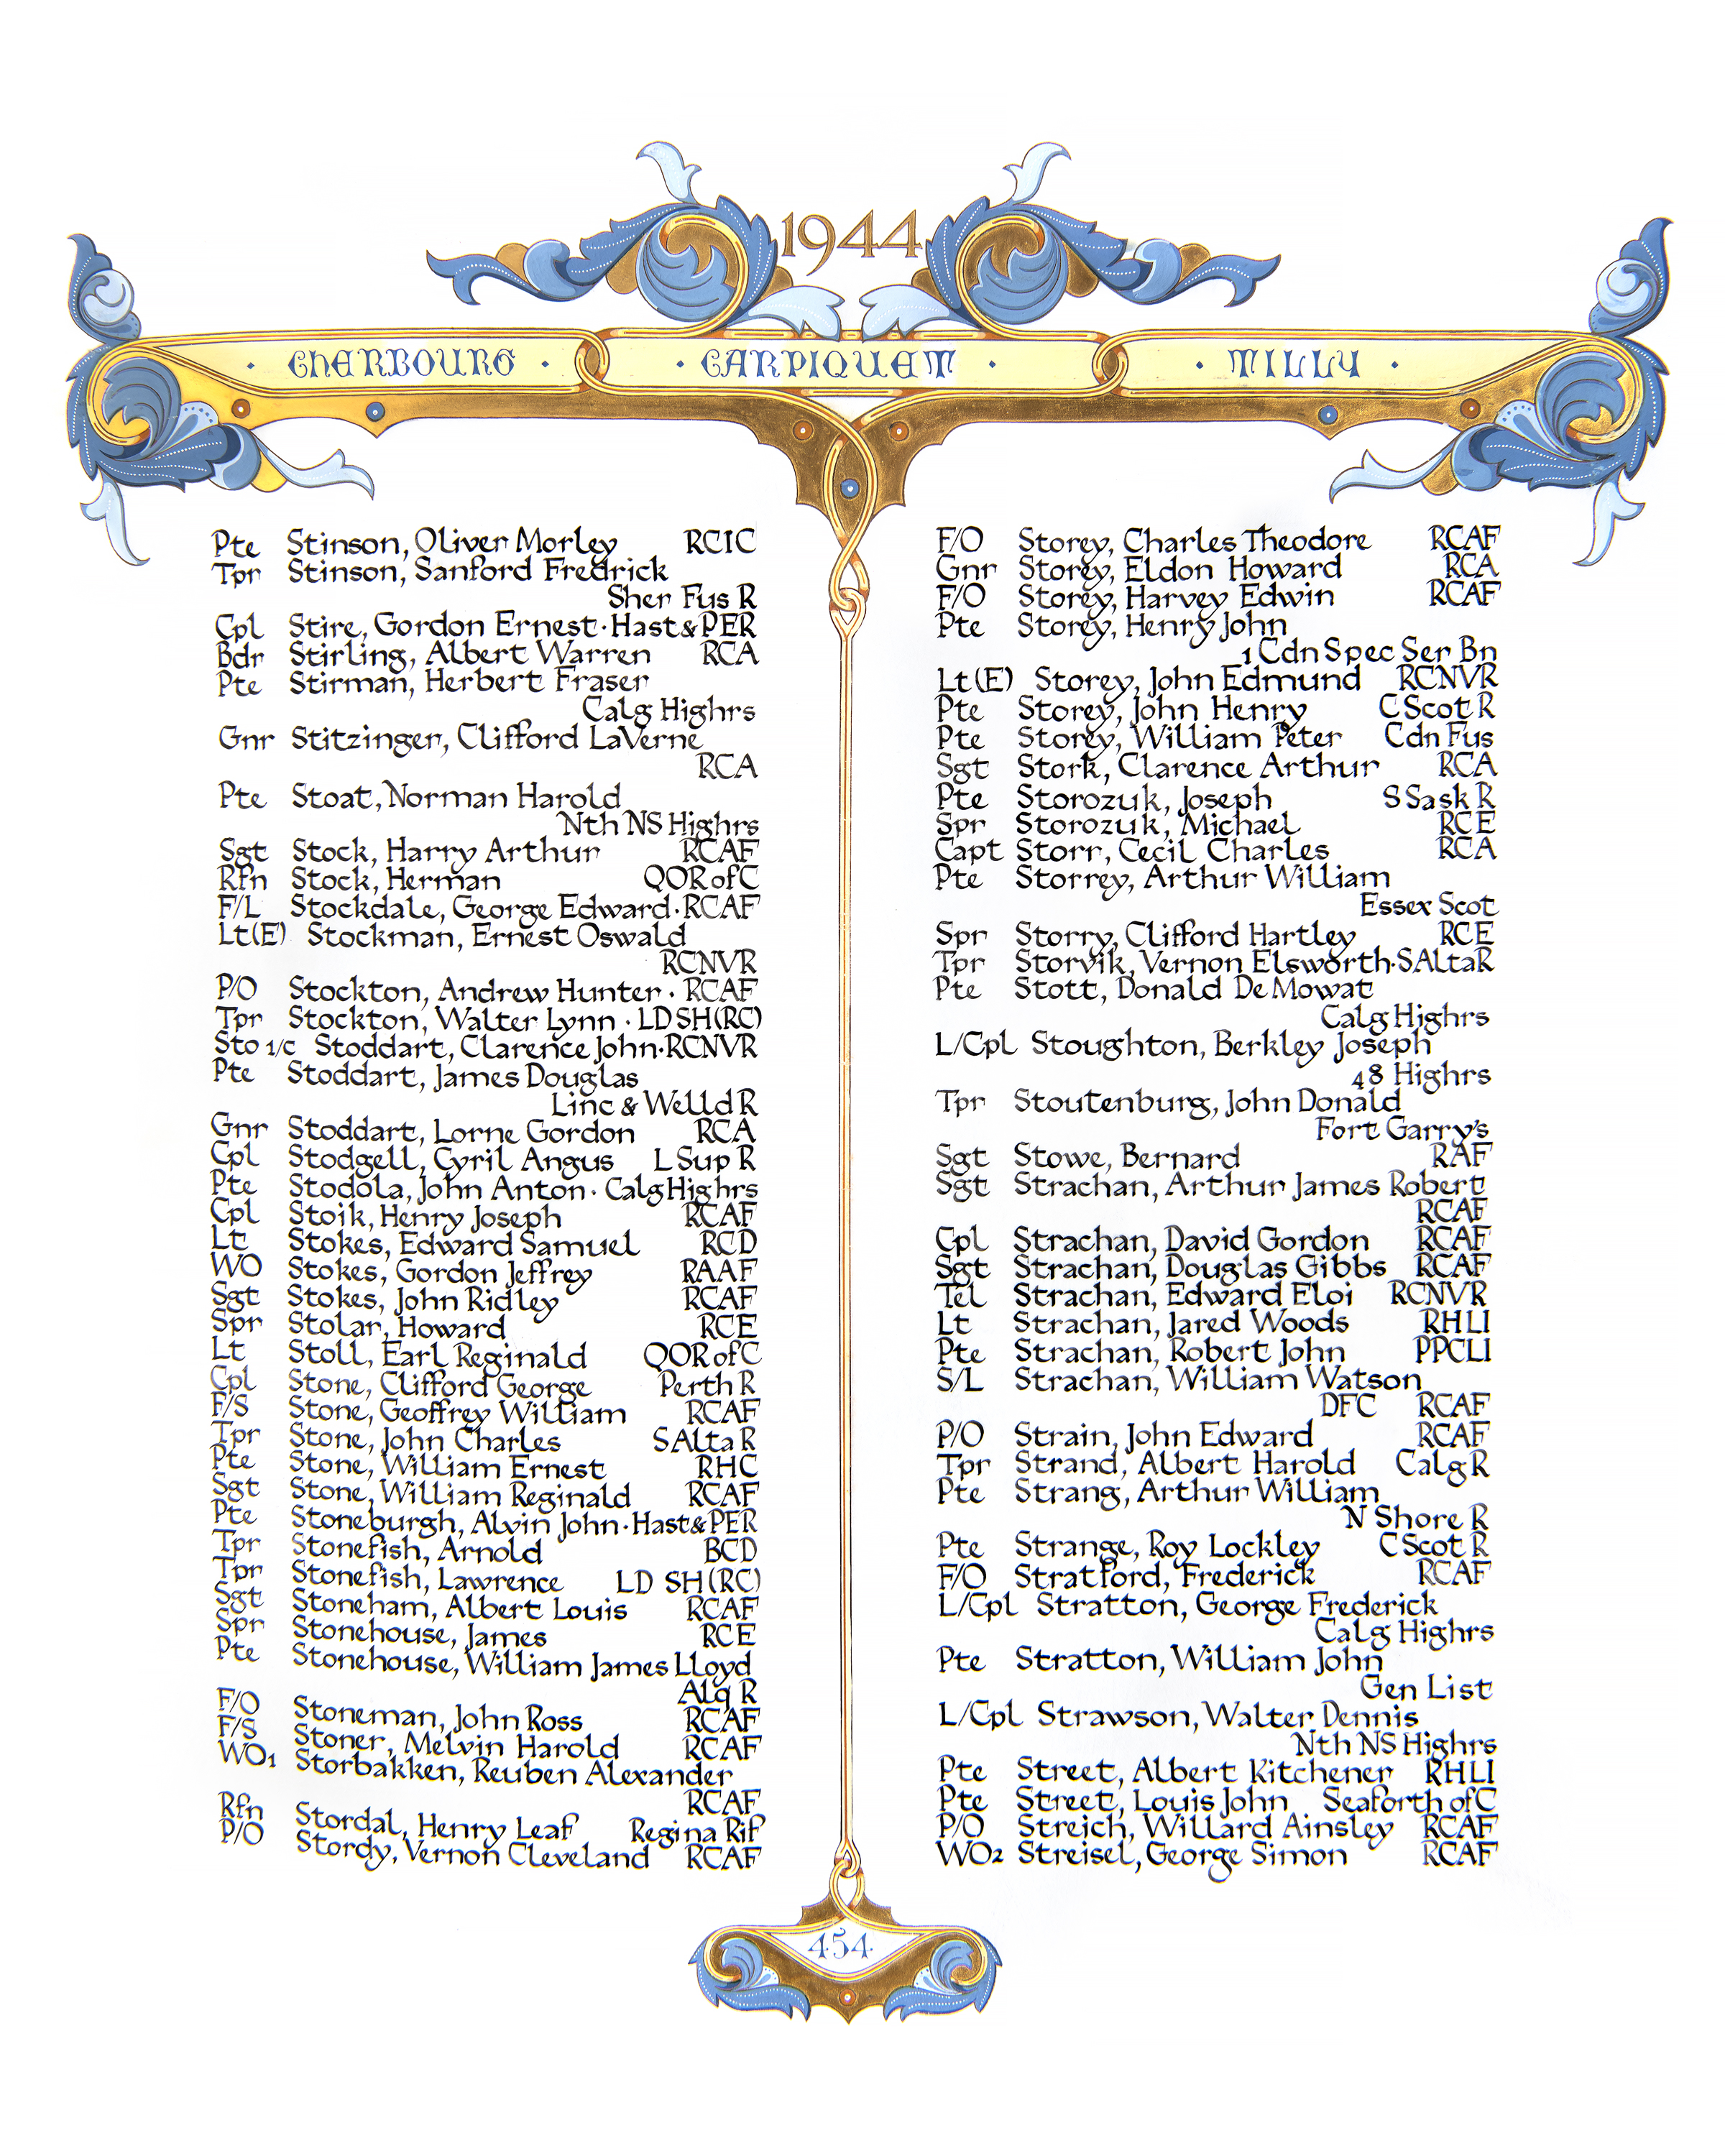 1944
· CHERBOURG · · CARPIQUET · · TILLY ·
Pte Stinson, Oliver Morley RCIC
Tpr Stinson, Sanford Fredrick
Sher Fus R
Cpl Stire, Gordon Ernest · Hast & PER
Bdr Stirling, Albert Warren RCA
Pte Stirman, Herbert Fraser
Calg Highrs
Gnr Stitzinger, Clifford LaVerne
RCA
Pte Stoat, Norman Harold
Nth NS Highrs
Sgt Stock, Harry Arthur RCAF
Rfn Stock, Herman QOR of C
F/L Stockdale, George Edward · RCAF
Lt(E) Stockman, Ernest Oswald
RCNVR
P/O Stockton, Andrew Hunter · RCAF
Tpr Stockton, Walter Lynn · LD SH (RC)
Sto 1/c Stoddart, Clarence John · RCNVR
Pte Stoddart, James Douglas
Linc & Welld R
Gnr Stoddart, Lorne Gordon RCA
Cpl Stodgell, Cyril Angus L Sup R
Pte Stodola, John Anton · Calg Highrs
Cpl Stoik, Henry Joseph RCAF
Lt Stokes, Edward Samuel RCD
WO Stokes, Gordon Jeffrey RAAF
Sgt Stokes, John Ridley RCAF
Spr Stolar, Howard RCE
Lt Stoll, Earl Reginald QOR of C
Cpl Stone, Clifford George Perth R
F/S Stone, Geoffrey William RCAF
Tpr Stone, John Charles S Alta R
Pte Stone, William Ernest RHC
Sgt Stone, William Reginald RCAF
Pte Stoneburgh, Alvin John · Hast & PER
Tpr Stonefish, Arnold BCD
Tpr Stonefish, Lawrence LD SH (RC)
Sgt Stoneham, Albert Louis RCAF
Spr Stonehouse, James RCE
Pte Stonehouse, William James Lloyd
Alq R
F/O Stoneman, John Ross RCAF
F/S Stoner, Melvin Harold RCAF
WO1 Storbakken, Reuben Alexander
RCAF
Rfn Stordal, Henry Leaf Regina Rif
P/O Stordy, Vernon Cleveland RCAF
F/O Storey, Charles Theodore RCAF
Gnr Storey, Eldon Howard RCA
F/O Storey, Harvey Edwin RCAF
Pte Storey, Henry John
1 Cdn Spec Ser Bn
Lt (E) Storey, John Edmund RCNVR
Pte Storey, John Henry C Scot R
Pte Storey, William Peter Cdn Fus
Sgt Stork, Clarence Arthur RCA
Pte Storozuk, Joseph S Sask R
Spr Storozuk, Michael RCE
Capt Storr, Cecil Charles RCA
Pte Storrey, Arthur William
Essex Scot
Spr Storry, Clifford Hartley RCE
Tpr Storvik, Vernon Elsworth · S Alta R
Pte Stott, Donald De Mowat
Calg Highrs
L/Cpl Stoughton, Berkley Joseph
48 Highrs
Tpr Stoutenburg, John Donald
Fort Garry's
Sgt Stowe, Bernard RAF
Sgt Strachan, Arthur James Robert
RCAF
Cpl Strachan, David Gordon RCAF
Sgt Strachan, Douglas Gibbs RCAF
Tel Strachan, Edward Eloi RCNVR
Lt Strachan, Jared Woods RHLI
Pte Strachan, Robert John PPCLI
S/L Strachan, William Watson
DFC RCAF
P/O Strain, John Edward RCAF
Tpr Strand, Albert Harold Calg R
Pte Strang, Arthur William
N Shore R
Pte Strange, Roy Lockley C Scot R
F/O Stratford, Frederick RCAF
L/Cpl Stratton, George Frederick
Calg Highrs
Pte Stratton, William John
Gen List
L/Cpl Strawson, Walter Dennis
Nth NS Highrs
Pte Street, Albert Kitchener RHLI
Pte Street, Louis John Seaforth of C
P/O Streich, Willard Ainsley RCAF
WO2 Streisel, George Simon RCAF
·454·